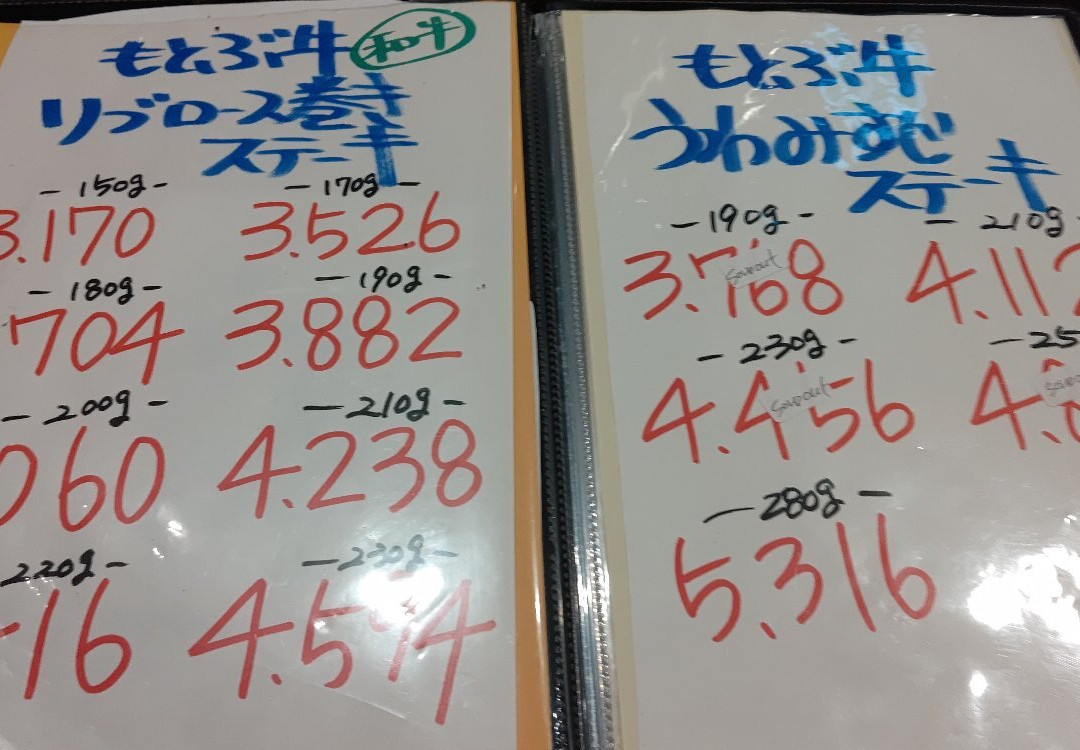 もとぶ牛 和牛
リブロース巻き
ステーキ
-150g- -170g-
3.170 3.526
-180g- -190g-
704 3.882
-200g- -210g-
060 4.238
220g- -230g-
16 4.594
もとぶ牛
うわみすじ
ステーキ
-190g- -210g
3.768 4.112
Soud out
-230g- -25
4.456 4.
Soud out
-280g-
5.316